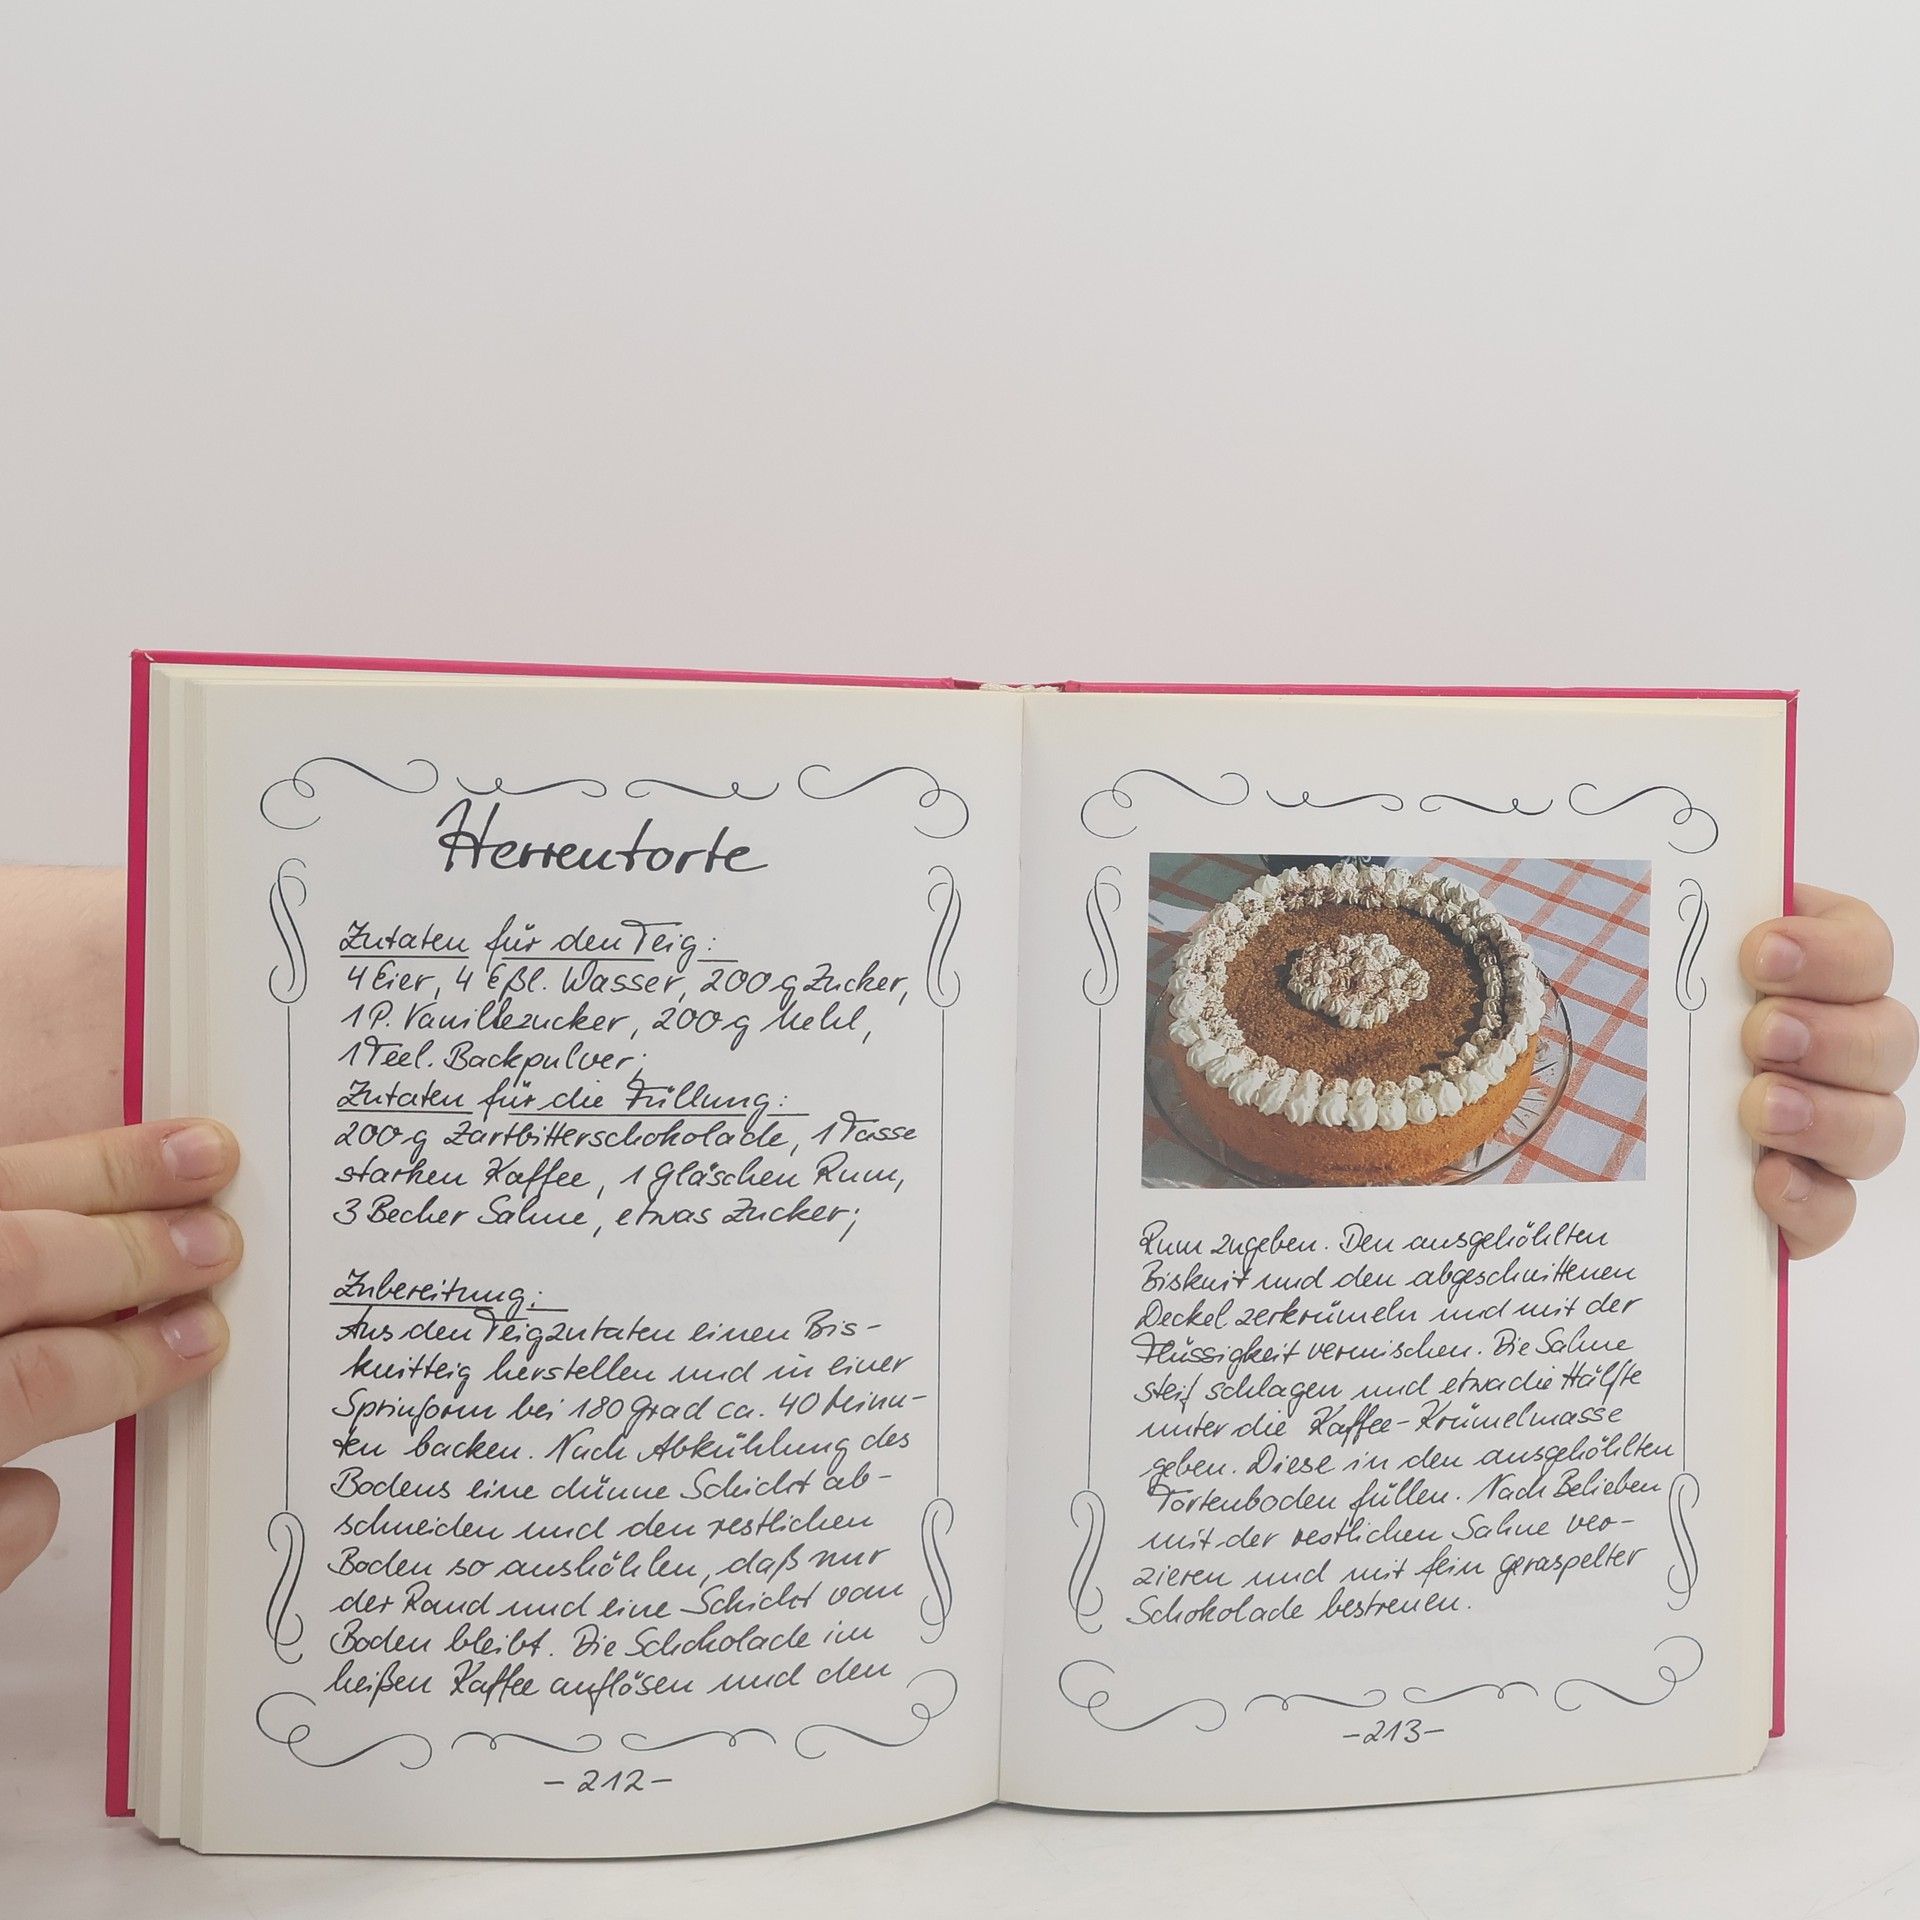 Herrentorte
Zutaten für den Teig:
4 Eier, 4 Eßl. Wasser, 200 g Zucker,
1 P. Vanillezucker, 200 g Mehl,
1 Teel. Backpulver;
Zutaten für die Füllung:
200 g Zartbitterschokolade, 1 Tasse
starken Kaffee, 1 Gläschen Rum,
3 Becher Sahne, etwas Zucker;
Zubereitung:
Aus den Teigzutaten einen Bis-
kuitteig herstellen und in einer
Springform bei 180 Grad ca. 40 Minu-
ten backen. Nach Abkühlung des
Bodens eine dünne Schicht ab-
schneiden und den restlichen
Boden so aushöhlen, daß nur
der Rand und eine Schicht vom
Boden bleibt. Die Schokolade im
heißen Kaffee auflösen und den
-212-
Rum zugeben. Den ausgehöhlten
Biskuit und den abgeschnittenen
Deckel zerkrümeln und mit der
Flüssigkeit vermischen. Die Sahne
steif schlagen und etwa die Hälfte
unter die Kaffee-Krümelmasse
geben. Diese in den ausgehöhlten
Tortenboden füllen. Nach Belieben
mit der restlichen Sahne ver-
zieren und mit fein geraspelter
Schokolade bestreuen.
-213-